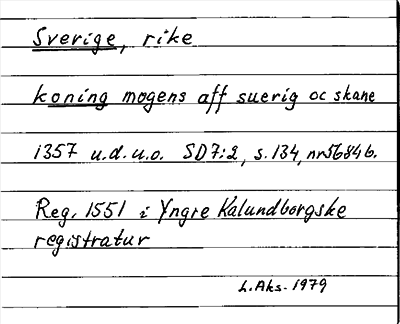 Sverige, rike
koning mogens aff suerig oc skane
1357 u.d.u.o. SD7:2, s.134, nr5684b.
Reg. 1551 i Yngre Kalundborgske
registratur
L.Aks. 1979